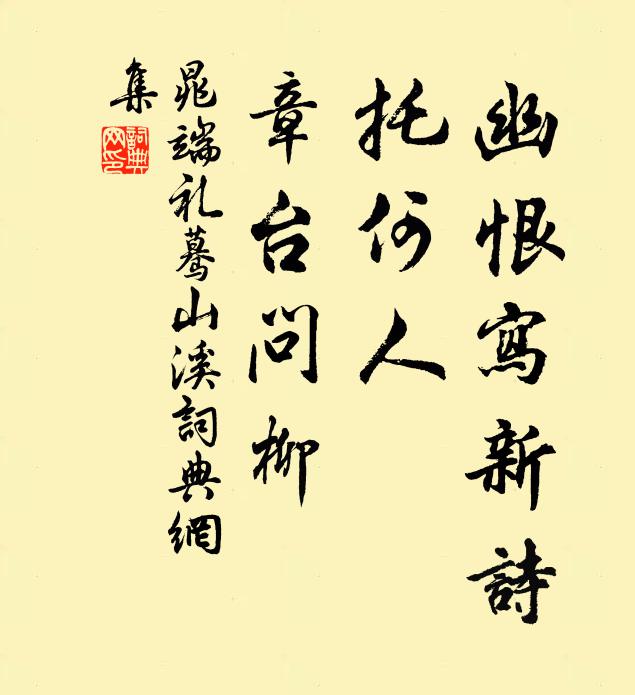 幽恨寫新詩
托何人
章台問柳
晁端礼驀山溪詞典網
集
詞典网印